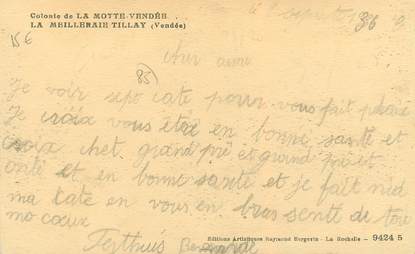 Colonie de LA MOTTE-VENDÉE
LA MEILLERAIE TILLAY (Vendée)
15€
85
Je voir sept cate pour vous fait plaisir
Je croix vous être en bonne santé et
croix chet grand pré et grand
onte et en bonne santé et je fait nid
ma cate en vous en bras sente de tou
mo cœux
Bernarde
Editions Artistiques Raymond Bergevin - La Rochelle - 9424 5